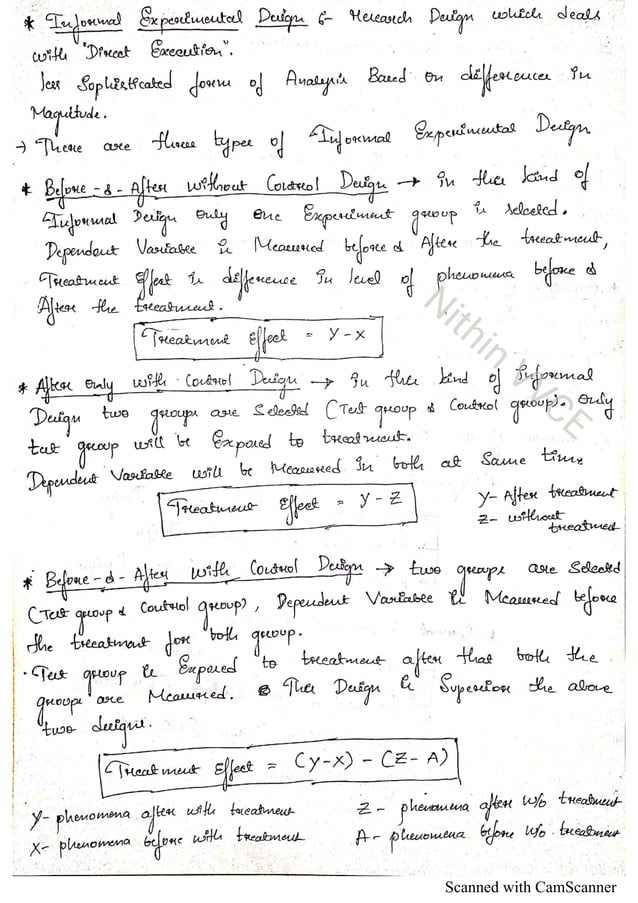 * Informal Experimental Design :- Research Design which deals
with "Direct Execution".
less Sophisticated form of Analysis Based on differences in
Magnitude.
→ There are three types of Informal Experimental Design
* Before-&-After without Control Design → in this kind of
Informal Design only one Experiment group is selected.
Dependent Variable is Measured before & After the treatment,
Treatment Effect is difference in level of phenomena before &
After the treatment.
Treatment Effect = Y-X
* After only with Control Design → in this kind of Informal
Design two groups are Selected (Test group & Control group). Only
test group will be Exposed to treatment.
Dependent Variable will be Measured in both at Same time.
Treatment Effect = Y-Z
Y- After treatment
Z- without
treatment
* Before-&-After with Control Design → two groups are Selected
(Test group & Control group), Dependent Variable is Measured before
the treatment for both group.
· Test group is Exposed to treatment after that both the
groups are Measured. This Design is Superior the above
two designs.
Treatment Effect = (Y-X) - (Z-A)
Y- phenomena after with treatment
Z- phenomena after w/o treatment
X- phenomena before with treatment
A- phenomena before w/o treatment
Nithin VVCE
Scanned with CamScanner